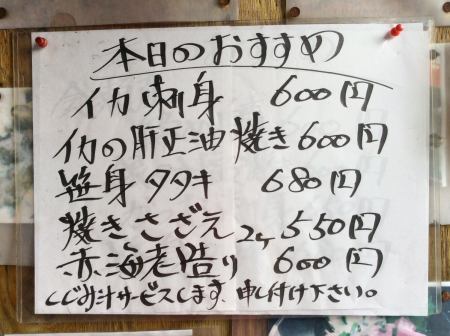 本日のおすすめ
イカ刺身 600円
イカの肝正油焼き 600円
笹身タタキ 680円
焼きさざえ 2ケ 550円
赤海老造り 600円
しじみ汁サービスします、申し付け下さい。